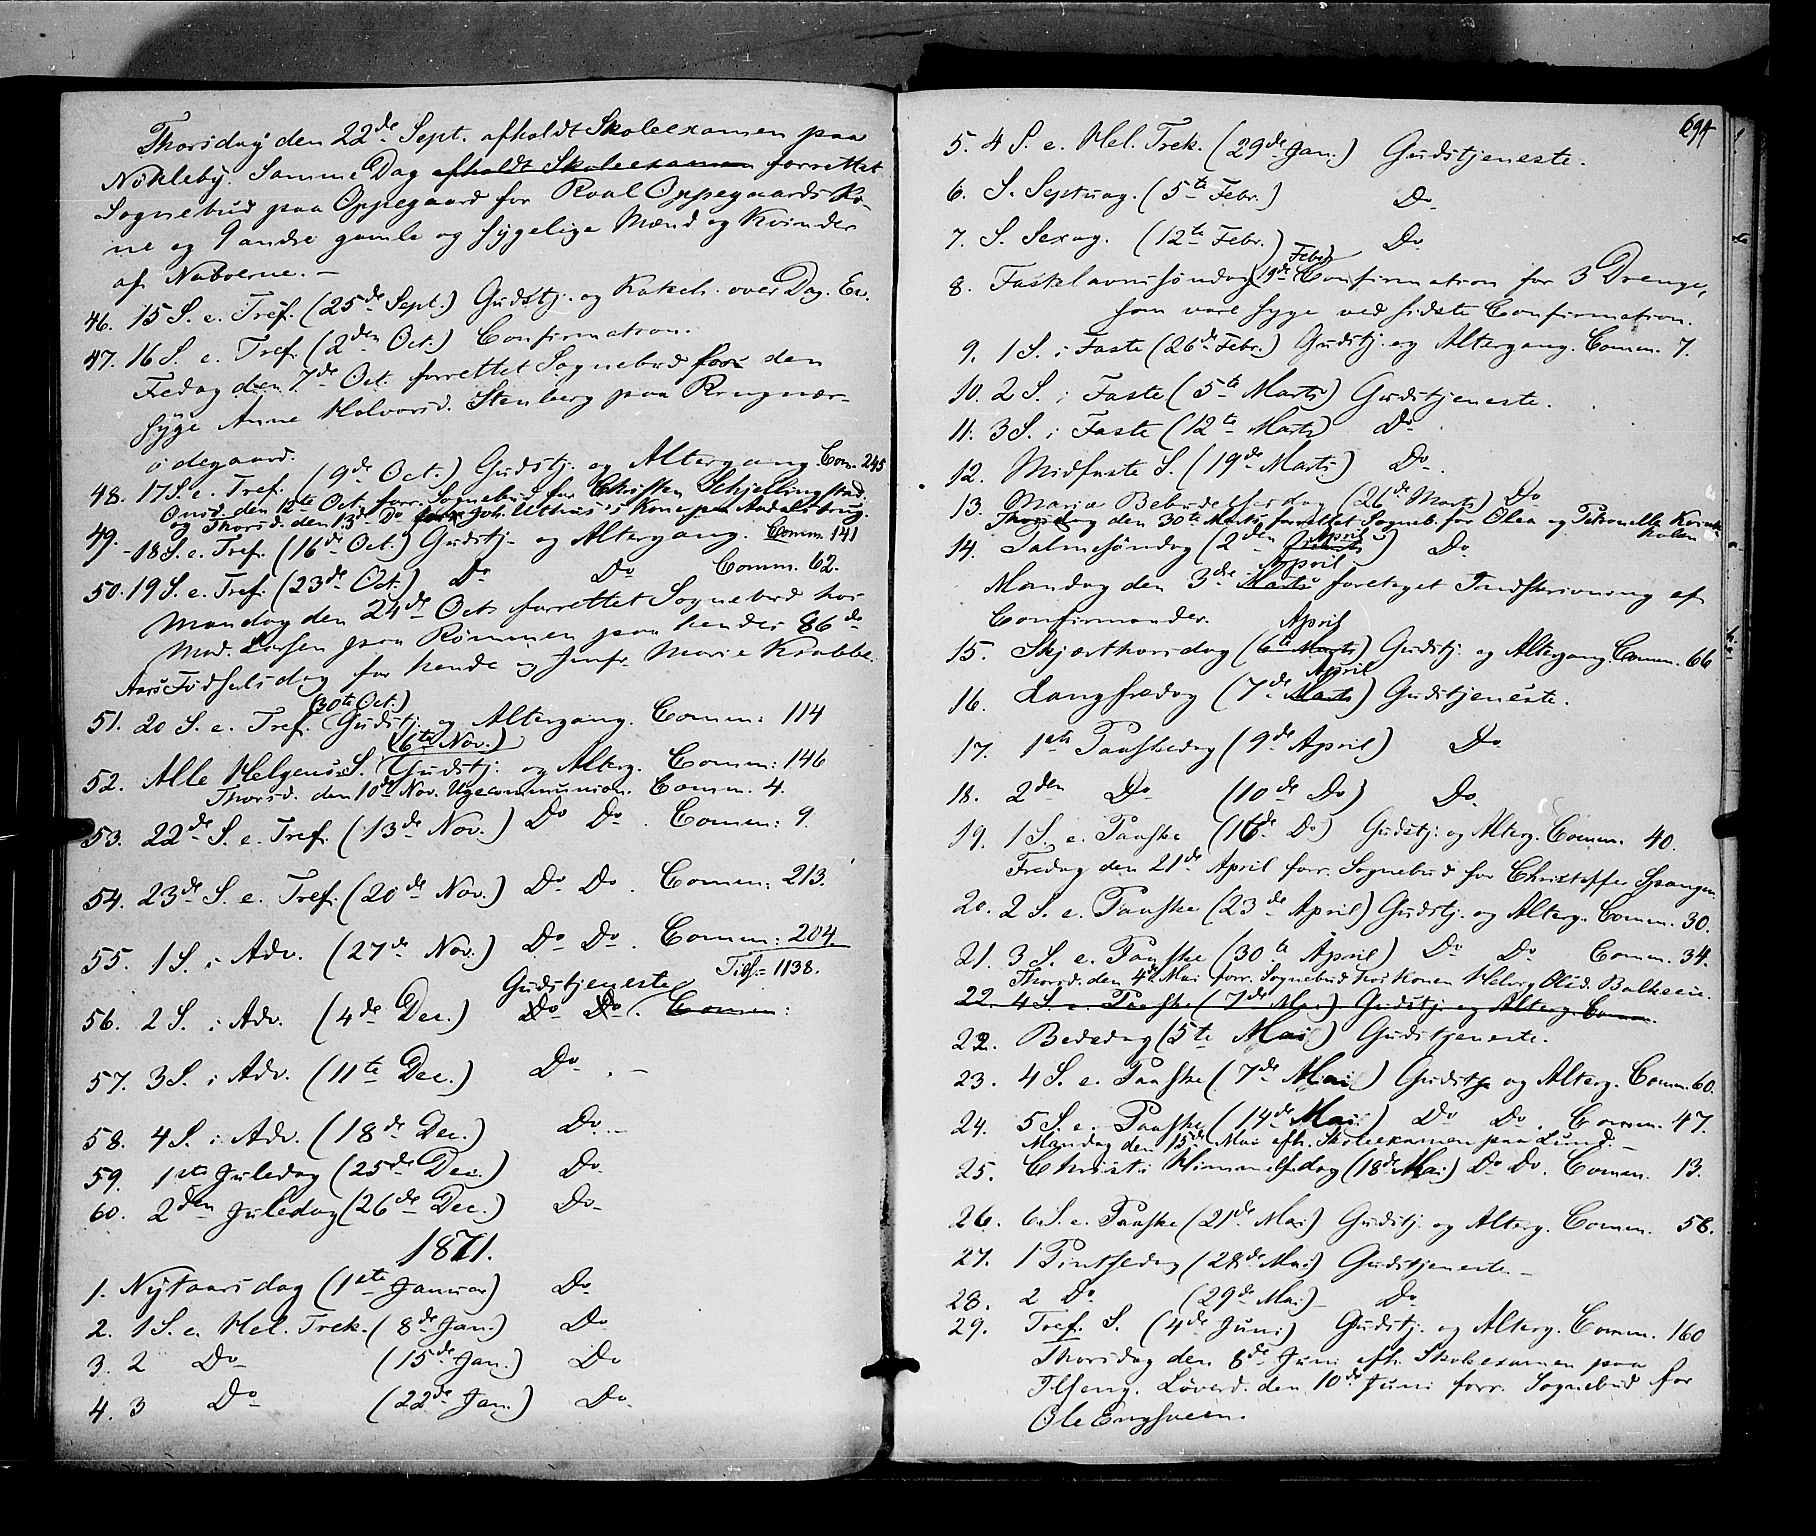 Thorsdag den 22de Sept. afholdt Skoleexamen paa
Nökleby. Samme Dag afholdt Skoleexamen forrettet
Sognebud paa Oppegaard for Roal Oppegaards Ko-
ne og 9 andre gamle og sygelige Mænd og Kvinder
af Naboerne. -
46. 15 S. e. Tref. (25de Sept.) Gudstj. og Katech. over Dag. Ev.
47. 16 S. e. Tref. (2den Oct.) Confirmation.
Fredag den 7de Oct. forrettet Sognebud for den
syge Anne Halvorsd. Stenberg paa Rognær-
ödegaard.
48. 17 S. e. Tref. (9de Oct.) Gudstj. og Altergang. Com. 245
Onsd. den 12te Oct. forr. Sognebud for Christen Schjellingstad.
og Thorsd. den 13de Do for Joh. Uthus's Kone paa
49. 18 S. e. Tref. (16de Oct.) Gudstj. og Altergang. Comm. 141
50. 19 S. e. Tref. (23de Oct.) Do Do Comm. 62.
Mandag den 24de Oct. forrettet Sognebud hos
Mad. Larsen paa Römmen paa hendes 86de
Aars Födselsdag for hende og Jomfr. Marie Krabbe.
(30te Oct.)
51. 20 S. e. Tref. Gudstj. og Altergang. Comm: 114
(6te Nov.)
52. Alle Helgens S. Gudstj. og Alterg. Comm: 146
Thorsd. den 10de Nov. Ugecommunion. Comm. 4.
53. 22de S. e. Tref. (13de Nov.) Do Do. Comm: 9.
54. 23de S. e. Tref. (20de Nov.) Do Do. Comm: 213.
55. 1 S. i Adv. (27de Nov.) Do Do. Comm: 204.
Tils: 1138.
Gudstjeneste
56. 2 S. i Adv. (4de Dec.) Do Do. Comm:
57. 3 S. i Adv. (11te Dec.) Do. -
58. 4 S. i Adv. (18de Dec.) Do. -
59. 1ste Juledag (25de Dec.) Do.
60. 2den Juledag (26de Dec.) Do.
1871.
1. Nytaarsdag (1ste Januar) Do
2. 1 S. e. Hel. Trek. (8de Jan.) Do
3. 2 Do (15de Jan.) Do
4. 3 Do (22de Jan.) Do.
694
5. 4 S. e. Hel. Trek. (29de Jan.) Gudstjeneste.
6. S. Septuag. (5te Febr.) Do.
7. S. Sexag. (12te Febr.) Do
Febr.)
8. Fastelavnssöndag (19de Confirmation for 3 Drenge,
som vare syge ved sidste Confirmation.
9. 1 S. i Faste (26de Febr.) Gudstj. og Altergang. Comm. 7.
10. 2 S. i Faste (5te Marts) Gudstjeneste.
11. 3 S. i Faste (12te Marts) Do.
12. Midfaste S. (19de Marts) Do.
13. Mariæ Bebudelsesdag (26de Marts) Do
Thorsdag den 30te Marts forrettet Sogneb. for Olea og Petronelle
April
14. Palmesöndag (2den Marts) Do
April
Mandag den 3die Marts foretaget Indskrivning af
Confirmander.
April
15. Skjærthorsdag (6te Marts) Gudstj. og Altergang. Comm. 66
April
16. Langfredag (7de Marts) Gudstjeneste.
17. 1ste Paaskedag (9de April) Do
18. 2den Do (10de Do) Do.
19. 1 S. e. Paaske (16de Do) Gudstj. og Alterg. Comm. 40.
Fredag den 21de April forr. Sognebud for Christoffer Spangen.
20. 2 S. e. Paaske (23de April) Gudstj. og Alterg. Comm. 30.
21. 3 S. e. Paaske (30te April) Do Do Comm. 34.
Thorsd. den 4de Mai forr. Sognebud hos Konen Helvig Olsd. Balkeeie.
22. 4 S. e. Paaske (7de Mai) Gudstj. og Alterg. Comm.
22. Bededag (5te Mai) Gudstjeneste.
23. 4 S. e. Paaske (7de Mai) Gudstj. og Alterg. Comm. 60.
24. 5 S. e. Paaske (14de Mai) Do Do. Comm. 47.
Mandag den 15de Mai afh. Skoleexamen paa Lund. -
25. Christi Himmelfsdag (18de Mai) Do Do. Comm. 13.
26. 6 S. e. Paaske (21de Mai) Gudstj. og Alterg. Comm. 58.
27. 1 Pintsedag (28de Mai) Gudstjeneste. -
28. 2 Do (29de Mai) Do
29. Tref. S. (4de Juni) Gudstj. og Alterg. Comm. 160
Thorsdag den 8de Juni afh. Skoleexamen paa
Ilseng. Löverd. den 10de Juni forr. Sognebud for
Ole Engsveen.